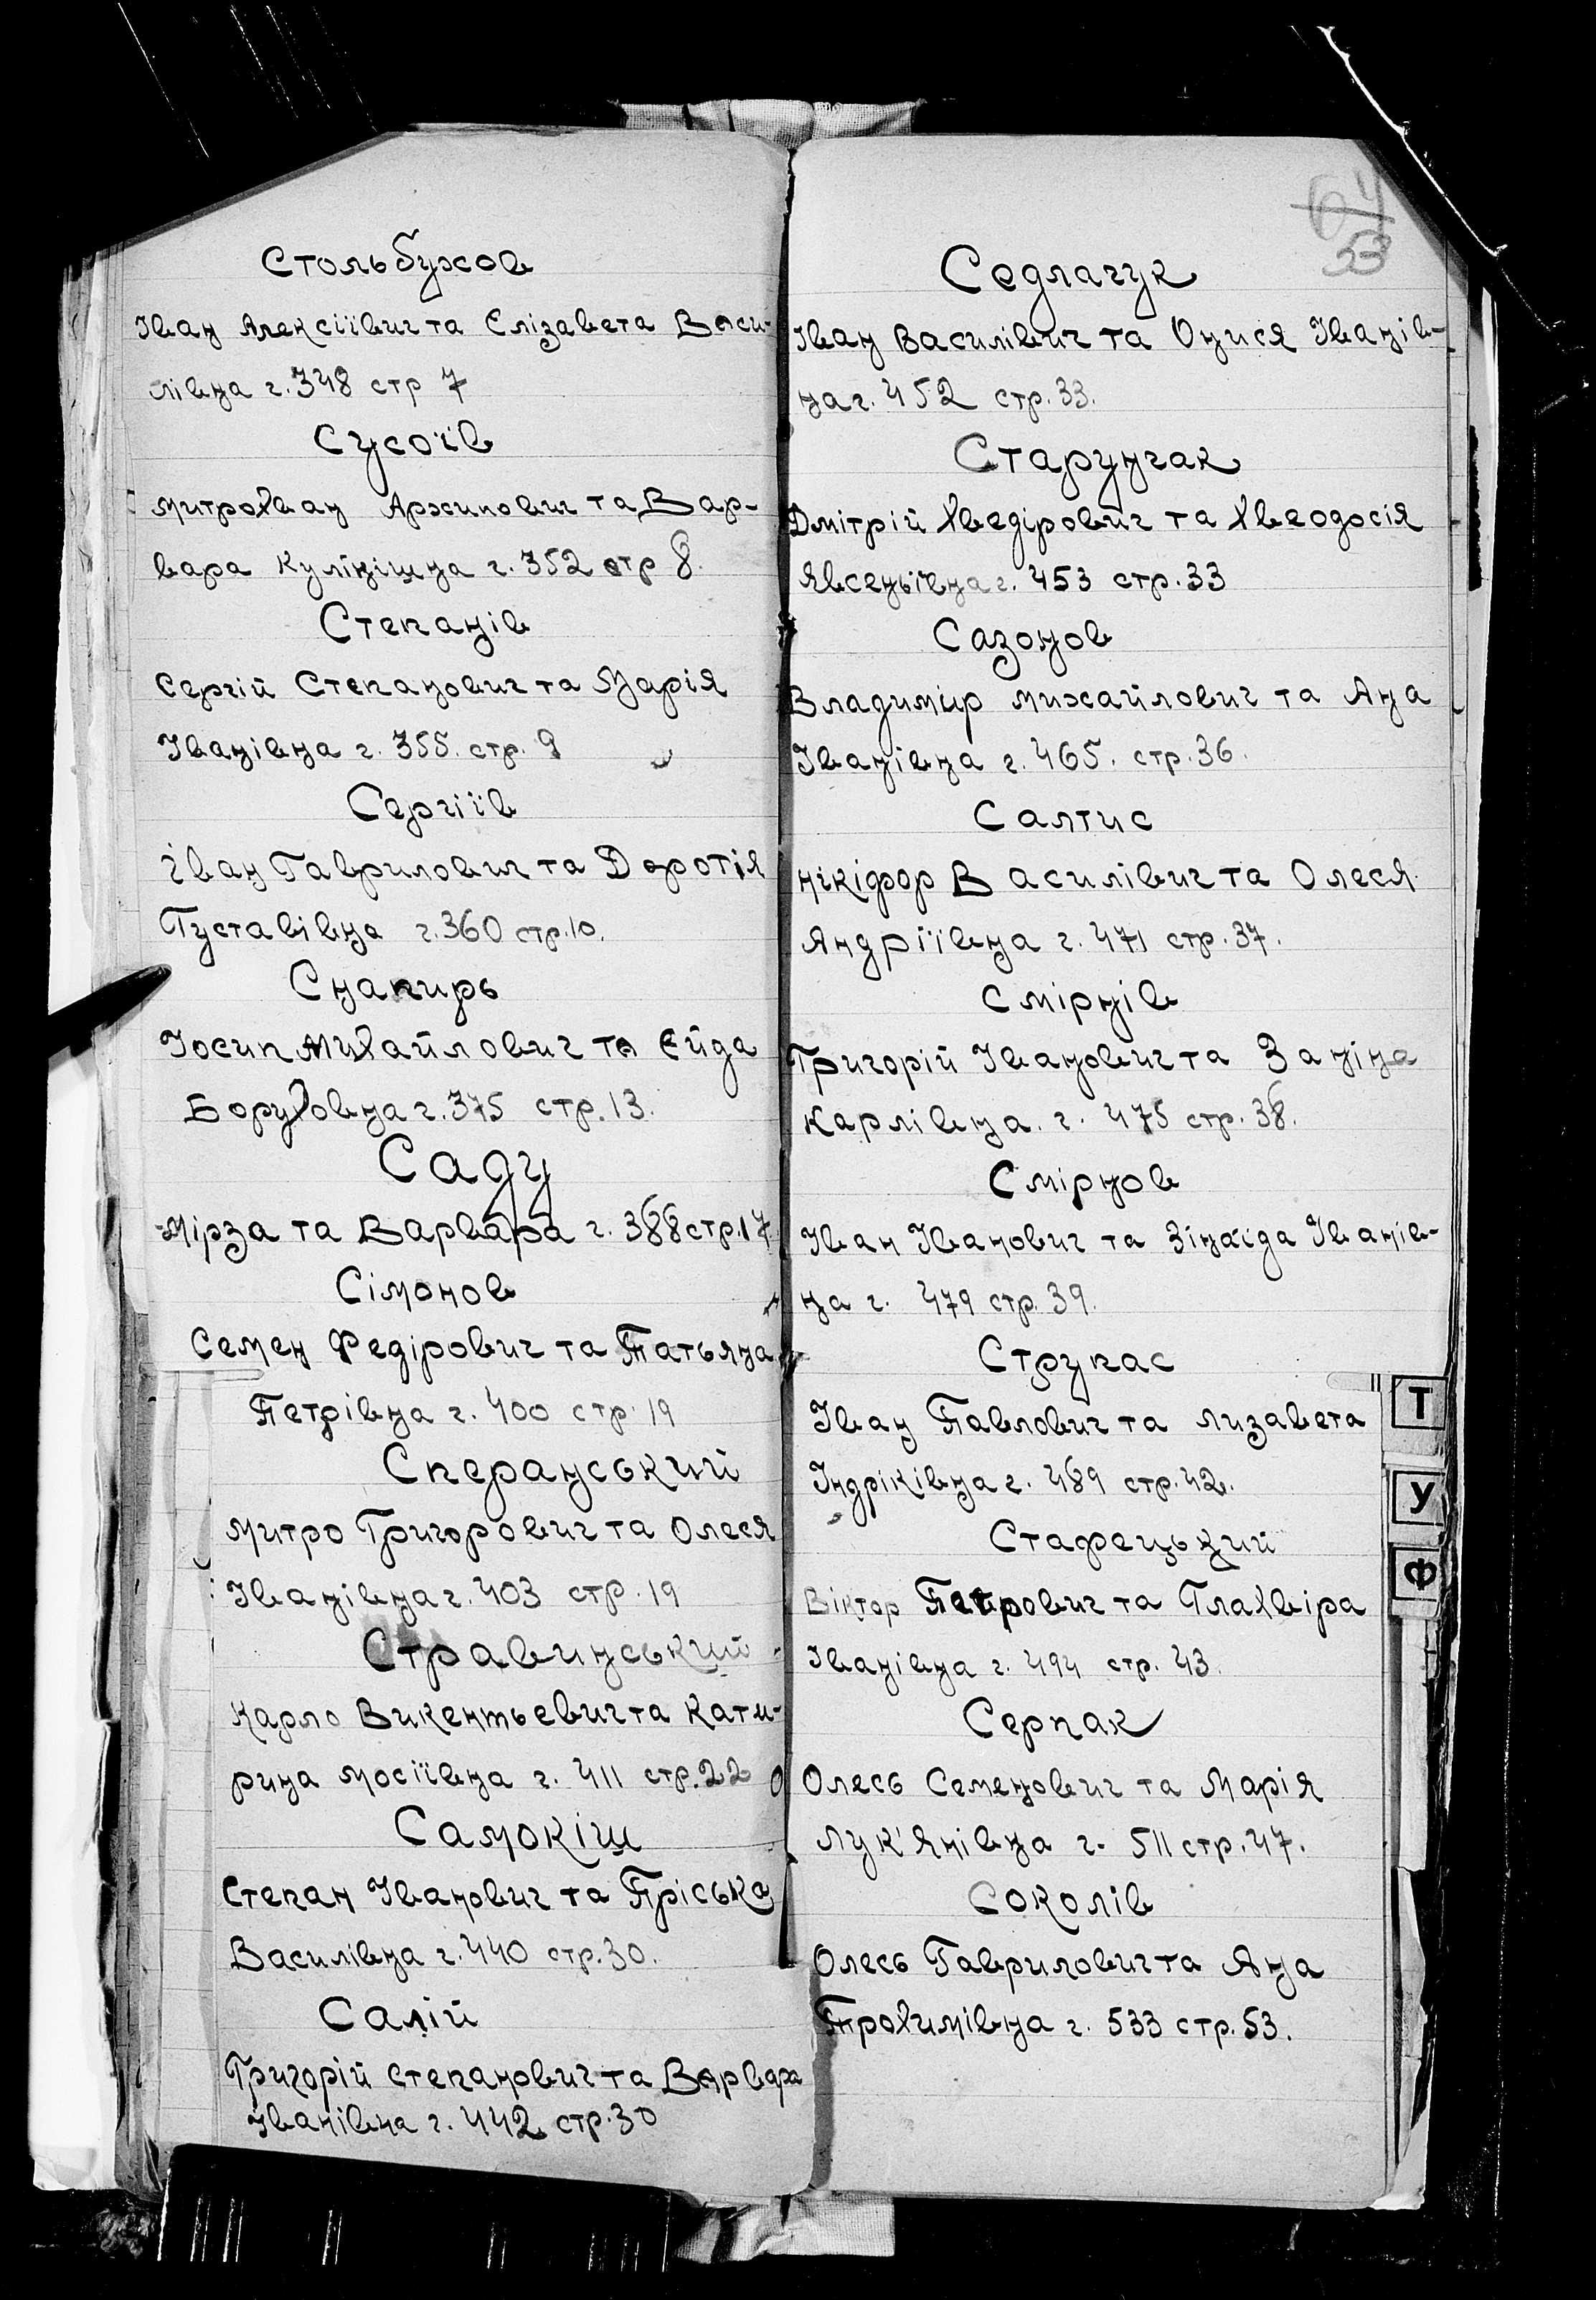 Стольбухов
Іван Алексіївич та Єлізавета Васи-
лівна г. 348 стр 7
Сусоїв
Митрохван Архипович та Вар-
вара Кулінішна г. 352 стр 8.
Степанів
Сергій Степанович та Марія
Іванівна г. 355. стр. 9
Сергіїв
Іван Гаврилович та Доротія
Густавівна г. 360 стр. 10.
Снапирь
Іосип Михайлович та Єйда
Боруховна г. 375 стр. 13.
Саду
Мірза та Варвара г. 388 стр. 17
Сімонов
Семен Федірович та Татьяна
Петрівна г. 400 стр. 19
Сперанський
Митро Григорович та Олеся
Іванівна г. 403 стр. 19
Стравинський
Карло Викентьевич та Кати-
рина Мосіївна г. 411 стр. 22
Самокіш
Степан Іванович та Пріська
Василівна г. 440 стр. 30.
Салій
Григорій Степанович та Варвара
Іванівна г. 442 стр. 30
64
53
Седлачук
Іван Василівич та Онися Іванів-
на г. 452 стр. 33.
Старунчак
Дмітрій Хведірович та Хвеодосія
Явсеньївна г. 453 стр. 33
Сазонов
Владимир Михайлович та Ана
Іванівна г. 465. стр. 36.
Салтис
Нікіфор Василівич та Олеся
Яндріївна г. 471 стр. 37.
Смірнів
Григорій Іванович та Заніна
Карлівна. г. 475 стр. 38.
Смірнов
Іван Іванович та Зінаїда Іванів-
на г. 479 стр. 39.
Струпас
Іван Павлович та Лизавета
Індріківна г. 489 стр. 42.
Стафецький
Віктор Петрович та Глахвіра
Іванівна г. 494 стр. 43.
Серпак
Олесь Семенович та Марія
Лук'янівна г. 511 стр. 47.
Соколів
Олесь Гаврилович та Яна
Трохимівна г. 533 стр. 53.
Т
У
Ф